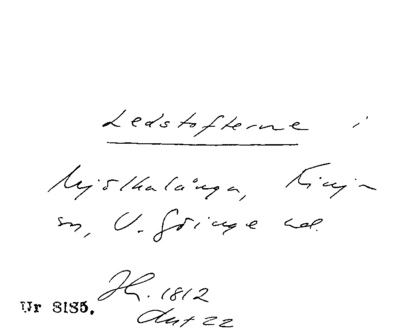 Ledstofterne i
Mjölkalånga, Finja
sn, V. Göinge hd.
Jh. 1812
Akt 22
Ur 8185.